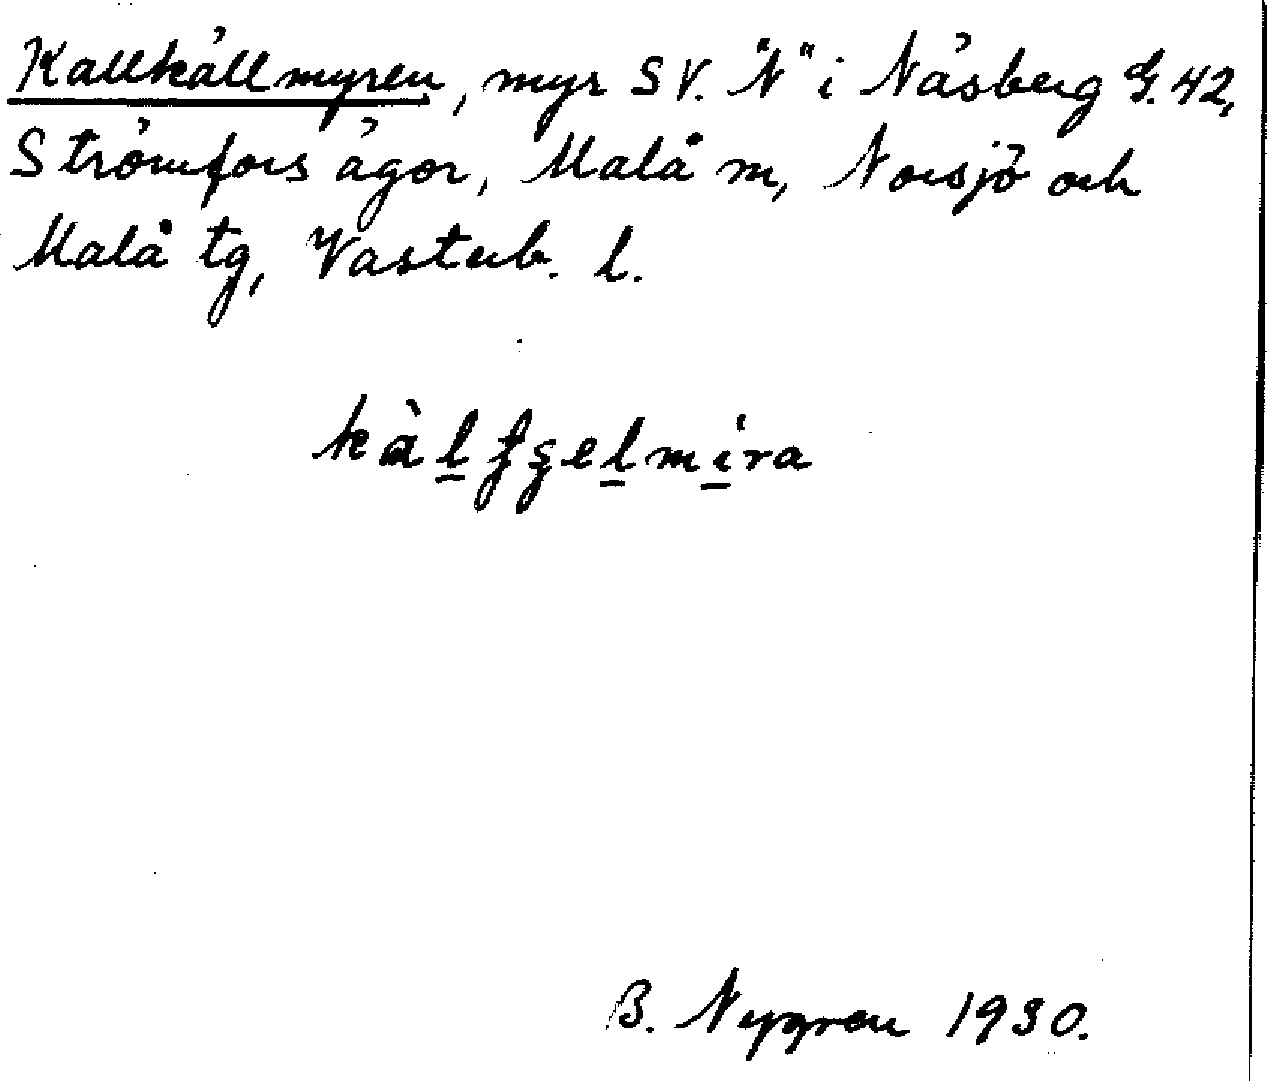 Kallkällmyren, myr SV. "N" i Näsberg G. 42,
Strömfors ägor, Malå m, Norsjö och
Malå tg, Västerb. l.
kàlʃʂelmíra
B. Nygren 1930.